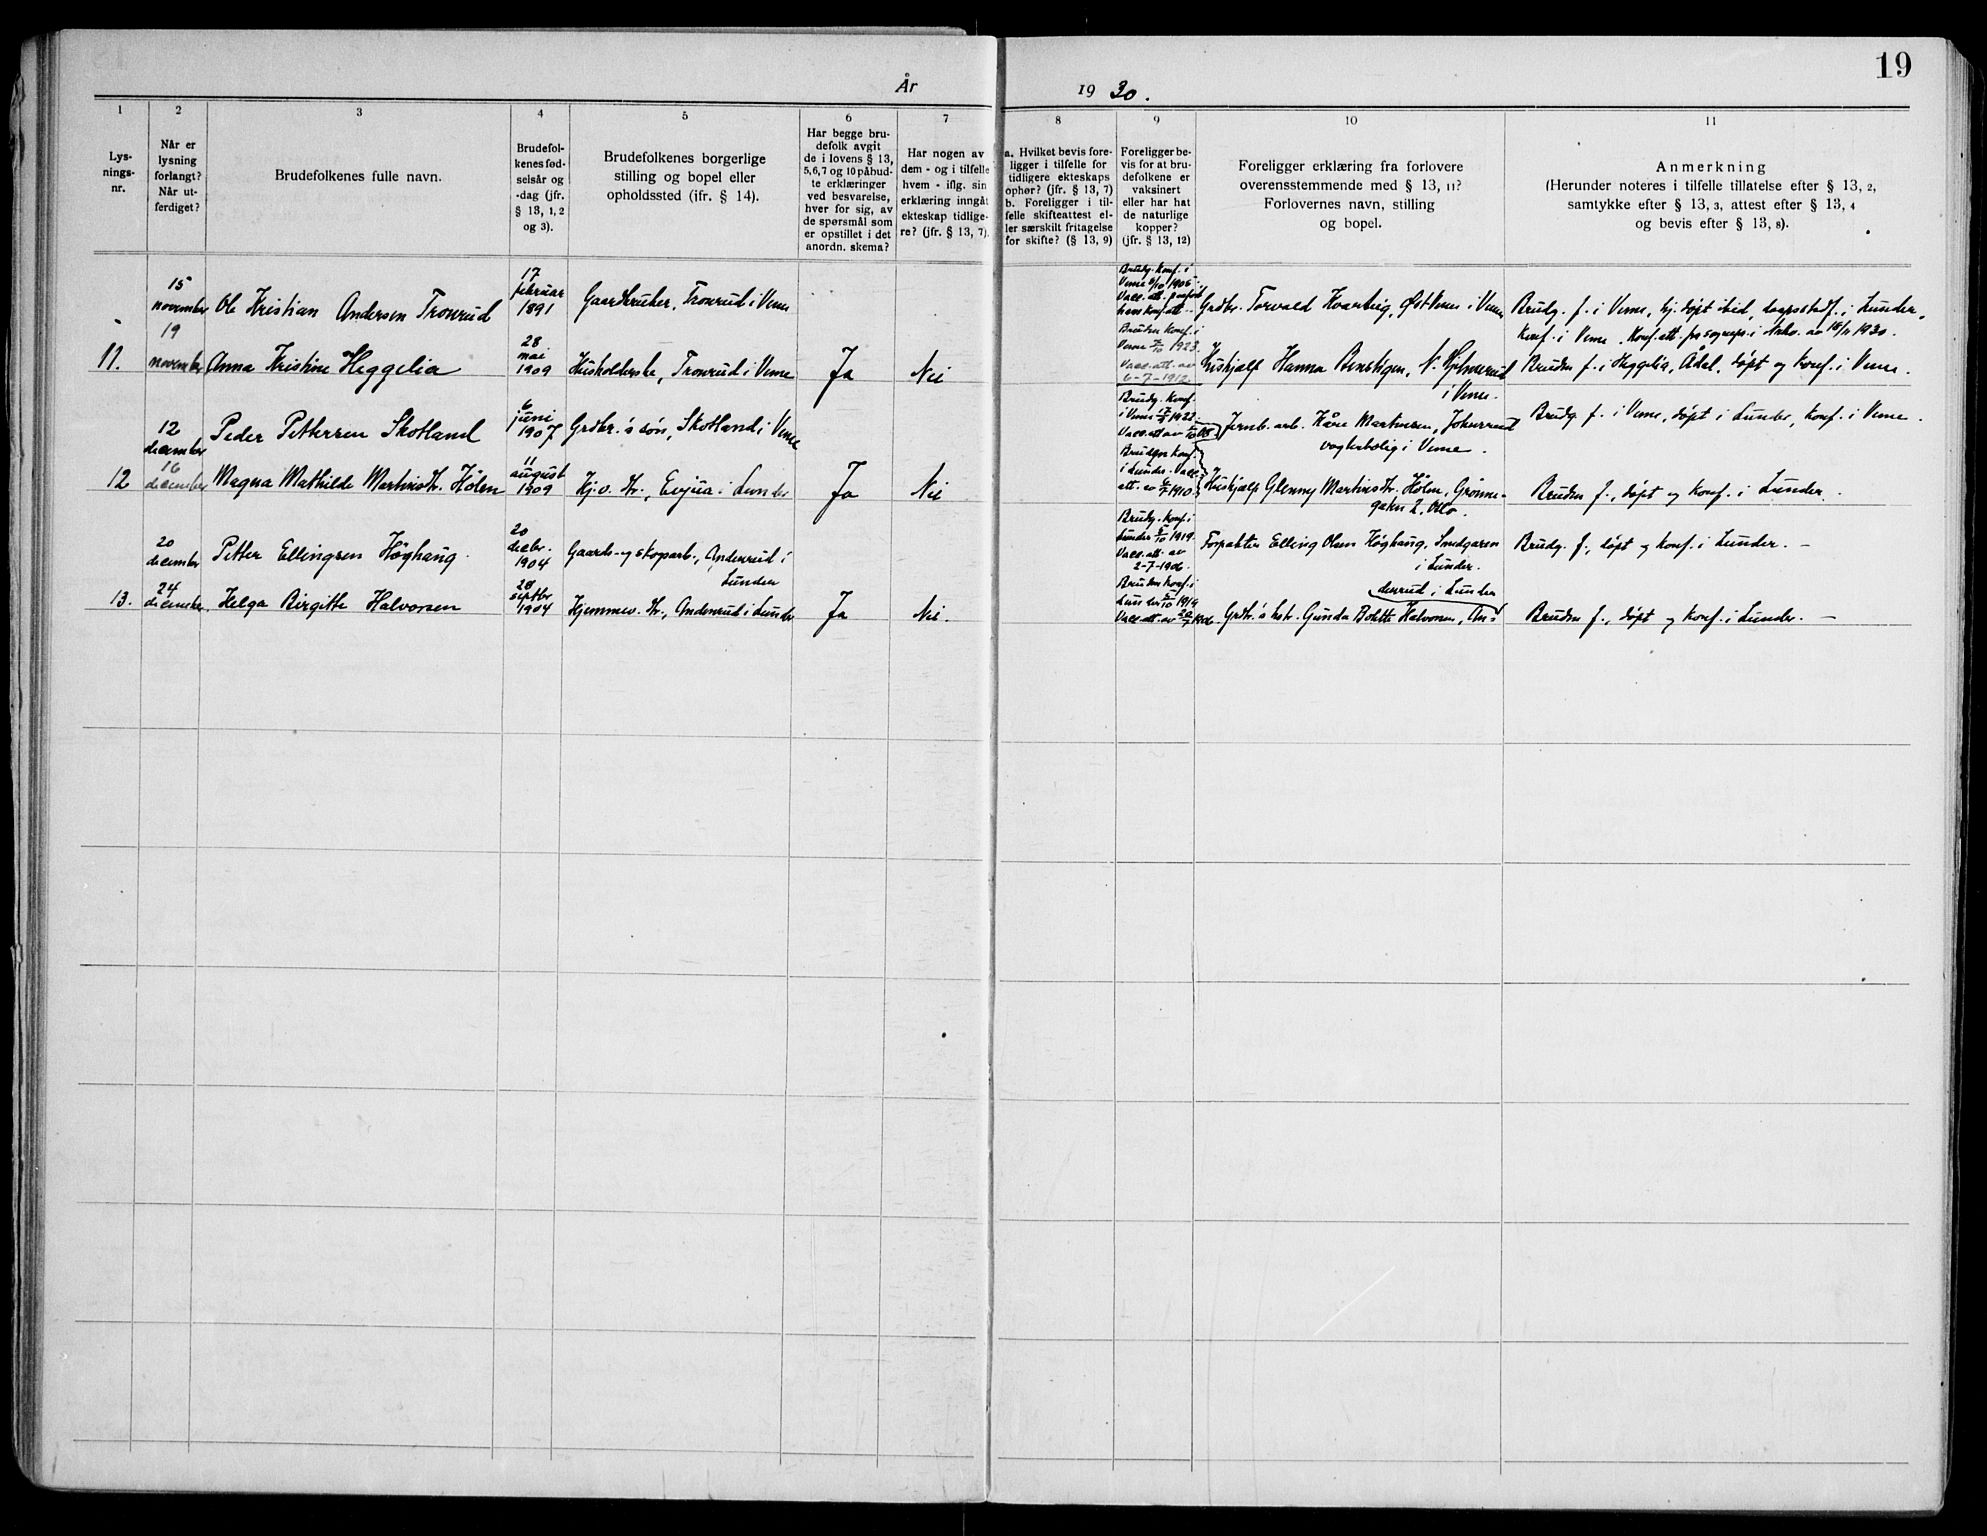 19
År 1930.
1
2
3
4
5
6
7
8
9
10
11
Lys-
nings-
nr.
Når er
lysning
forlangt?
Når ut-
ferdiget?
Brudefolkenes fulle navn.
Brudefol-
kenes fød-
selsår og
-dag (jfr.
§ 13, 1, 2
og 3).
Brudefolkenes borgerlige
stilling og bopel eller
opholdssted (ifr. § 14).
Har begge bru-
defolk avgit
de i lovens § 13,
5,6,7 og 10 påbud-
te erklæringer
ved besvarelse,
hver for sig, av
de spørsmål som
er opstillet i det
anordn. skema?
Har nogen av
dem - og i tilfelle
hvem - iflg. sin
erklæring inngåt
ekteskap tidlige-
re? (jfr. § 13, 7).
a. Hvilket bevis fore-
ligger i tilfelle for
tidligere ekteskaps
ophør? (jfr. § 13, 7)
b. Foreligger i til-
felle skifteattest el-
ler særskilt fritagelse
for skifte? (§ 13, 9)
Foreligger be-
vis for at bru-
defolkene er
vaksinert
eller har hat
de naturlige
kopper?
(jfr. § 13, 12)
Foreligger erklæring fra forlovere
overensstemmende med § 13, 11?
Forlovernes navn, stilling
og bopel.
Anmerkning
(Herunder noteres i tilfelle tillatelse efter § 13, 2,
samtykke efter § 13, 3, attest efter § 13, 4
og bevis efter § 13, 8).
15
november
Ole Kristian Andersen Tronrud
17
februar
1891
Gaardbruker, Tronrud i Veme
Brudg. konf. i
Veme 8/10 1905.
Vacc. att. paaført
hans konf. att.
Grdbr. Torvald Kvarberg, Øst Veme i Veme
Brudg. f. i Veme, hj. døpt ibid, daapsstadf. i Lunder,
konf. i Veme. Konf. att. fra sogneps. i Nrho. av 15/11 1930.
11.
19
november
Anna Kristine Heggelia
28
mai
1909
Husholderske, Tronrud i Veme
Ja
Nei
Bruden konf. i
Veme 7/10 1923.
Vacc. att. av
6-7-1912.
Hushjælp Hanna Benstigen, N. Hjelmerud
i Veme.
Bruden f. i Heggelia, Ådal, døpt og konf. i Veme.
12
december
Peder Pettersen Skotland
6
juni
1907
Grdbr.'s søn, Skotland i Veme
Brudg. konf.
i Veme 1922.
Vacc. att. av
Jernb. arb. Kåre Martinsen, Johnsrud
vogterbolig i Veme.
Brudg. f. i Veme, døpt i Lunder, konf. i Veme.
12
16
december
Magna Mathilde Martinsdtr. Hólen
11
august
1909
Hj.v. dtr., Evjua i Lunder
Ja
Nei
Bruden konf.
i Lunder. Vacc.
att. av 1910.
Hushjælp Glenny Martinsdtr. Hólen, Grønne-
gaten 2, Oslo.
Bruden f., døpt og konf. i Lunder.
20
december
Petter Ellingsen Høghaug.
20
decbr.
1904
Gaards- og skogarb., Anderud i
Lunder
Brudg. konf. i
Lunder 5/10 1919.
Vacc. att. av
2-7-1906.
Forpakter Elling Olsen Høghaug, Smedgaren
i Lunder.
Brudg. f., døpt og konf. i Lunder. —
13.
24
december
Helga Birgitte Halvorsen
28
septbr
1904
Hjemmev. dtr., Anderud i Lunder
Ja
Nei.
Bruden konf. i
Lunder 5/10 1919
Vacc. att. av 20/7 1906.
Grdbr.'s hstr. Gunda Bolette Halvorsen, An-
derud i Lunder
Bruden f., døpt og konf. i Lunder. —